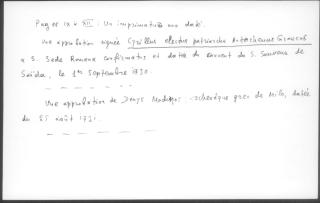 Pages IX à XII : Un imprimatur non daté.
Une approbation signée Cyrillus electus patriarcha Antiochenus Graecus
a S. Sede Romana confirmatus et datée du couvent du S. Sauveur de
Saïda, le 1er Septembre 1730.
Une approbation de archevêque grec de Milo, datée
du 25 août 1731.